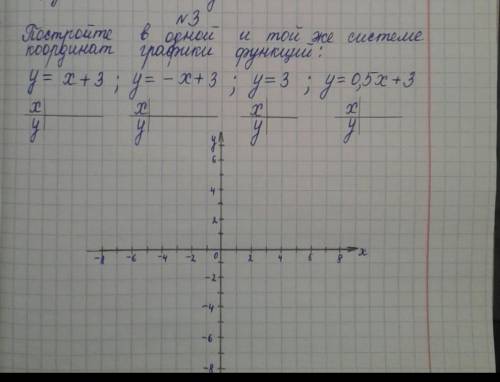 №3
Постройте в одной и той же системе
координат графики функций:
y = x+3 ; y = -x+3 ; y = 3 ; y = 0,5x+3
x x x x
y y y y
y
6
4
2
-8 -6 -4 -2 0 2 4 6 8 x
-2
-4
-6
-8